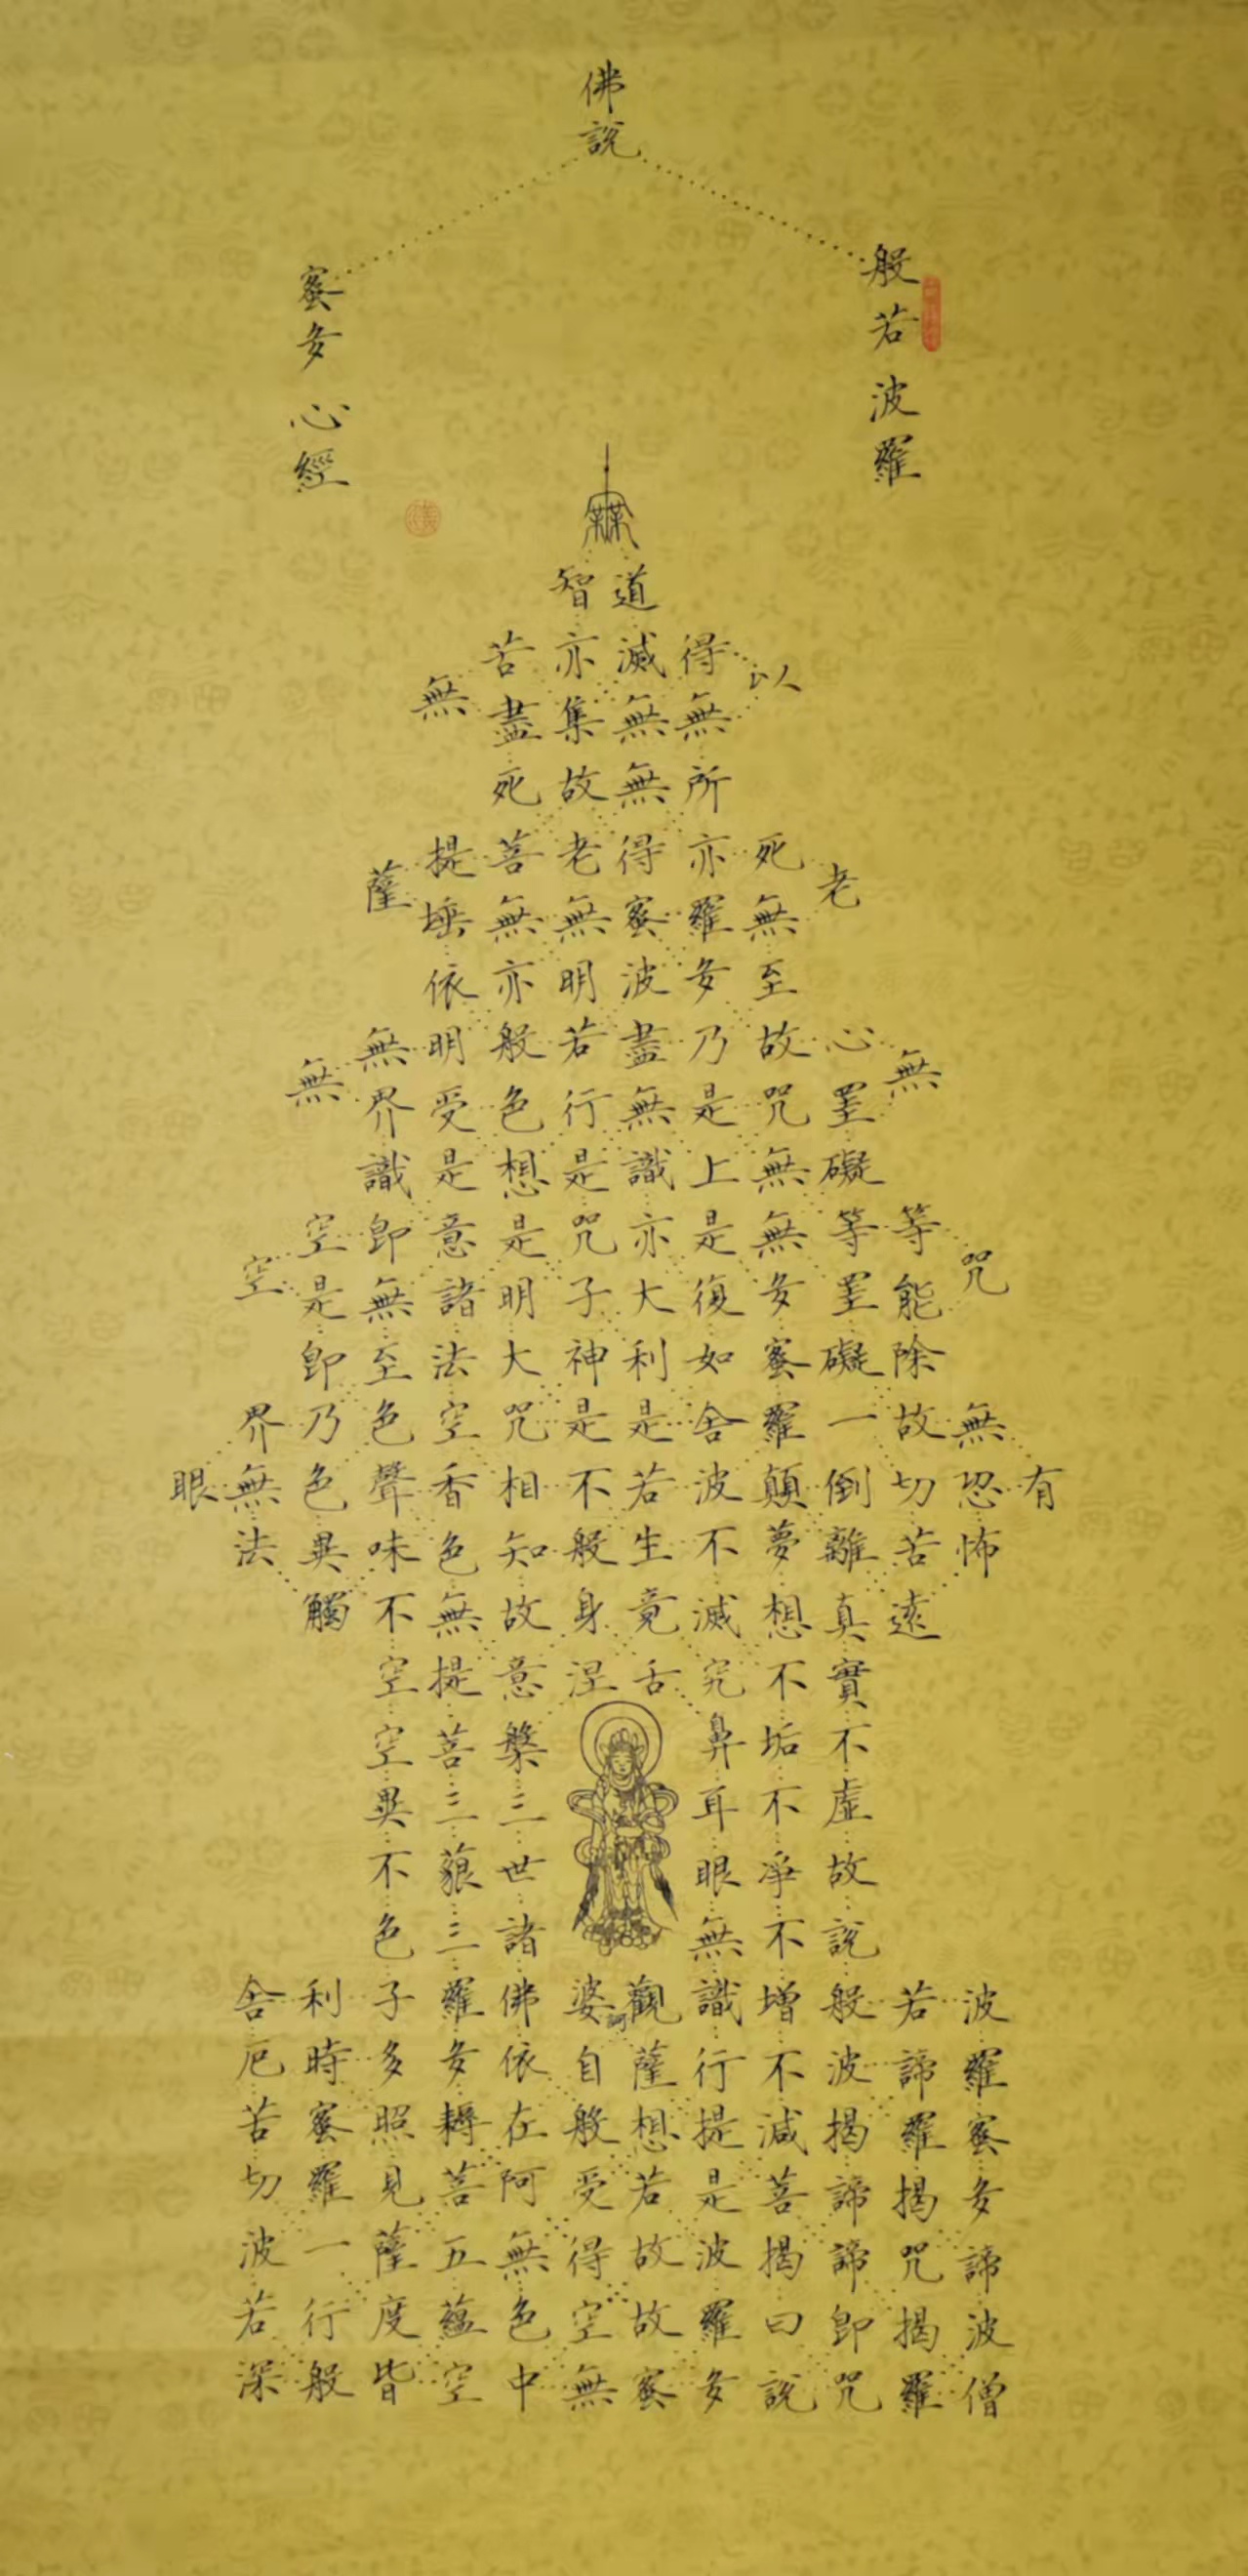 佛說
般若波羅
蜜多心經
無
智道
苦亦滅得
無以
盡集無無
死故無所
提菩老得亦死
薩老
埵無無蜜羅無
依亦明波多至
無明般若盡乃故心
無無
界受色行無是咒罣
識是想是識上無礙
空即意是咒亦是無等等
空咒
是無諸明子大復多罣能
即至法大神利如蜜礙除
界乃色空咒是是舍羅一故無
眼無色聲香相不若波顛倒切恐有
法異味色知般生不夢離苦怖
觸不無故身竟滅想真遠
空提意涅舌究不實
空菩槃鼻垢不
異三三耳不虛
不藐世眼淨故
色三諸無不說
舍利子羅佛婆訶觀識增般若波
厄時多多依自薩行不波諦羅
苦蜜照耨在般想提減揭羅蜜
切羅見菩阿受若是菩諦揭多
波一薩五無得故波揭諦咒諦
若行度蘊色空故羅曰即揭波
深般皆空中無蜜多說咒羅僧